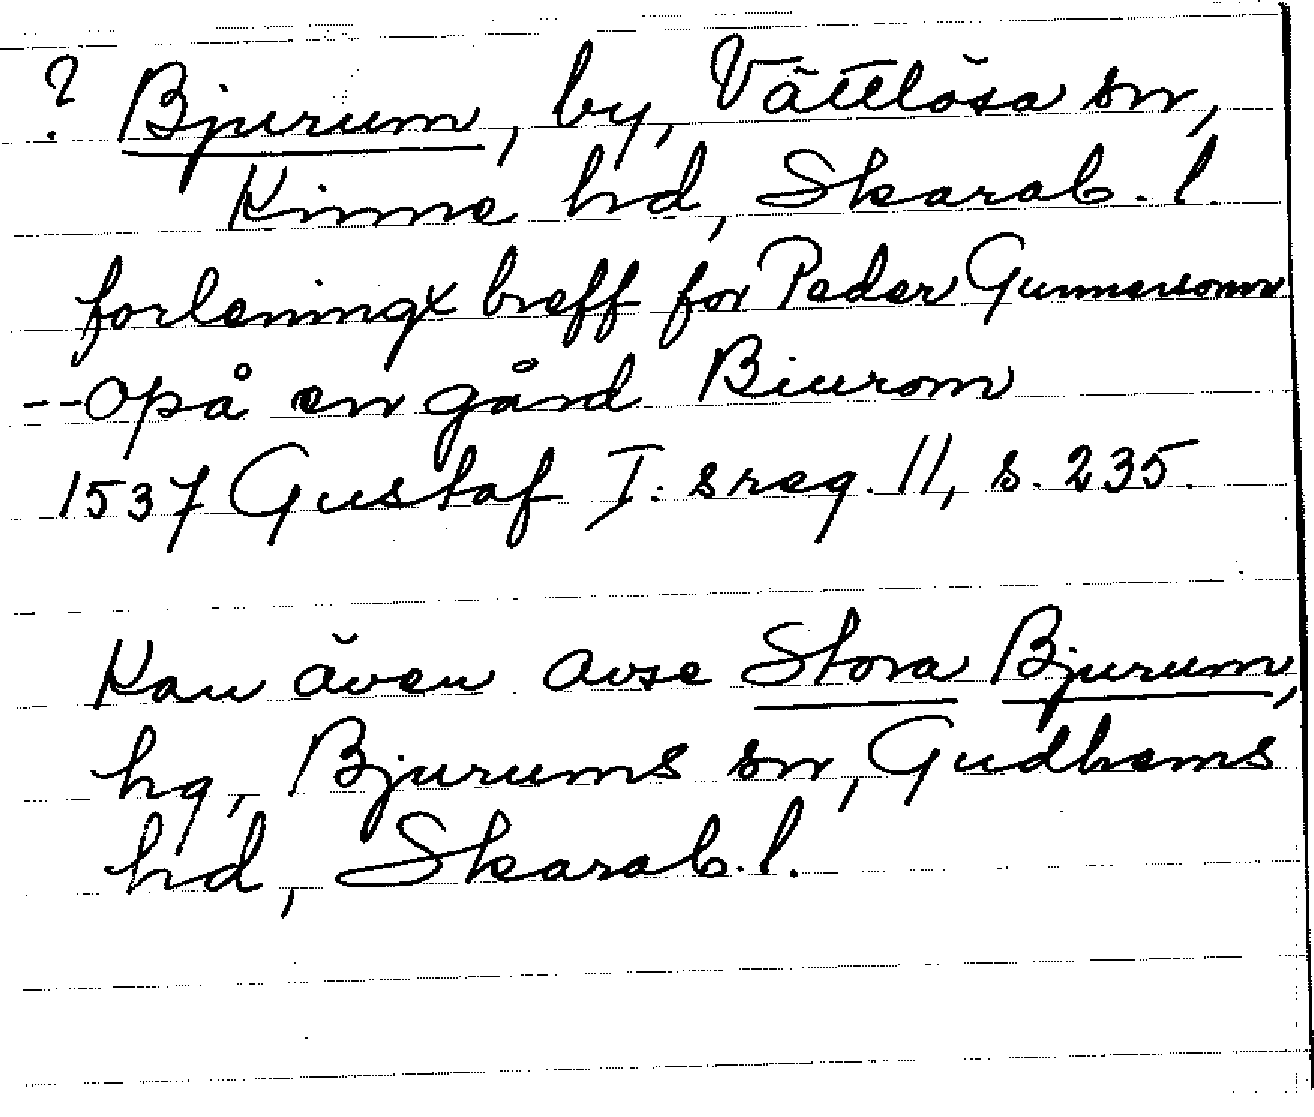 ? Bjurum, by, Vättlösa sn,
Kinne hd, Skarab. l.
forleningx breff for Peder Gunnersonn
-- opå en gård Biurom
1537 Gustaf I: s reg. 11, s. 235.
Kan även avse Stora Bjurum,
hg, Bjurums sn, Gudhems
hd, Skarab. l.